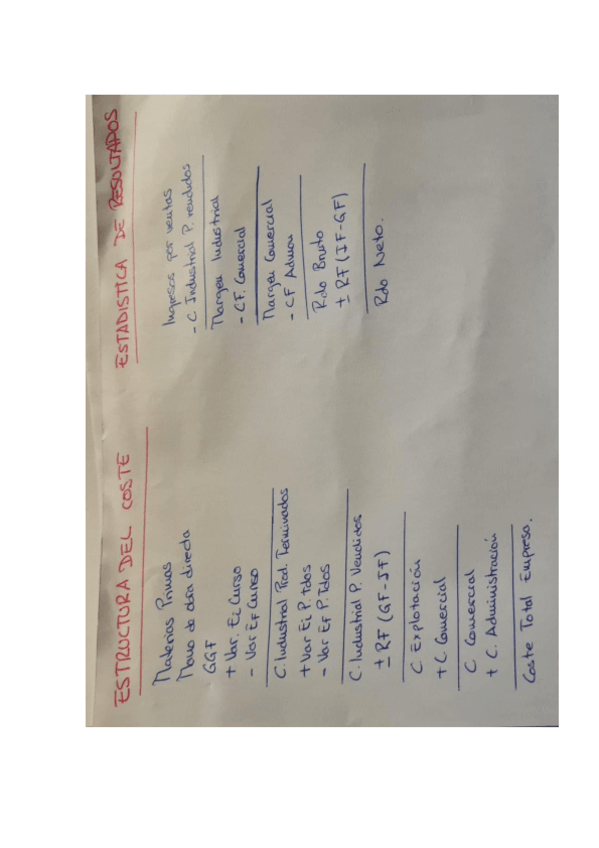 ESTRUCTURA DEL COSTE
Materias Primas
Mano de obra directa
GGF
+ Var. Ei Curso
- Var Ef Curso
C. Industrial Prod. Terminados
+ Var Ei P. Tdos
- Var Ef P. Tdos
C. Industrial P. Vendidos
± RF (GF-IF)
C Explotación
+ C. Comercial
C Comercial
+ C. Administración
Coste Total Empresa.
ESTADISTICA DE RESULTADOS
Ingresos por ventas
- C Industrial P. vendidos
Margen Industrial
- CF. Comercial
Margen Comercial
- CF Admon
Rdo Bruto
± RF (IF-GF)
Rdo Neto.